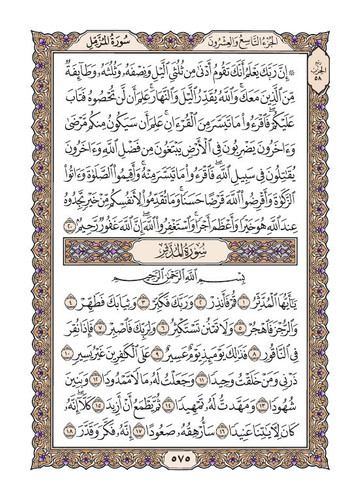 الجزء التاسع والعشرون ٥٧٥ سورة المزمل
ربع الحزب ٥٨
۞ إِنَّ رَبَّكَ يَعْلَمُ أَنَّكَ تَقُومُ أَدْنَىٰ مِن ثُلُثَيِ ٱلَّيْلِ وَنِصْفَهُۥ وَثُلُثَهُۥ وَطَآئِفَةٌ
مِّنَ ٱلَّذِينَ مَعَكَۚ وَٱللَّهُ يُقَدِّرُ ٱلَّيْلَ وَٱلنَّهَارَۚ عَلِمَ أَن لَّن تُحْصُوهُ فَتَابَ
عَلَيْكُمْۖ فَٱقْرَءُوا۟ مَا تَيَسَّرَ مِنَ ٱلْقُرْءَانِۚ عَلِمَ أَن سَيَكُونُ مِنكُم مَّرْضَىٰ
وَءَاخَرُونَ يَضْرِبُونَ فِى ٱلْأَرْضِ يَبْتَغُونَ مِن فَضْلِ ٱللَّهِۙ وَءَاخَرُونَ
يُقَٰتِلُونَ فِى سَبِيلِ ٱللَّهِۖ فَٱقْرَءُوا۟ مَا تَيَسَّرَ مِنْهُۚ وَأَقِيمُوا۟ ٱلصَّلَوٰةَ وَءَاتُوا۟
ٱلزَّكَوٰةَ وَأَقْرِضُوا۟ ٱللَّهَ قَرْضًا حَسَنًاۚ وَمَا تُقَدِّمُوا۟ لِأَنفُسِكُم مِّنْ خَيْرٍ تَجِدُوهُ
عِندَ ٱللَّهِ هُوَ خَيْرًا وَأَعْظَمَ أَجْرًاۚ وَٱسْتَغْفِرُوا۟ ٱللَّهَۖ إِنَّ ٱللَّهَ غَفُورٌ رَّحِيمٌۢ ٢٠
سورة المدثر
بِسْمِ ٱللَّهِ ٱلرَّحْمَٰنِ ٱلرَّحِيمِ
يَٰٓأَيُّهَا ٱلْمُدَّثِّرُ ١ قُمْ فَأَنذِرْ ٢ وَرَبَّكَ فَكَبِّرْ ٣ وَثِيَابَكَ فَطَهِّرْ ٤
وَٱلرُّجْزَ فَٱهْجُرْ ٥ وَلَا تَمْنُن تَسْتَكْثِرُ ٦ وَلِرَبِّكَ فَٱصْبِرْ ٧ فَإِذَا نُقِرَ
فِى ٱلنَّاقُورِ ٨ فَذَٰلِكَ يَوْمَئِذٍ يَوْمٌ عَسِيرٌ ٩ عَلَى ٱلْكَٰفِرِينَ غَيْرُ يَسِيرٍ ١٠
ذَرْنِى وَمَنْ خَلَقْتُ وَحِيدًا ١١ وَجَعَلْتُ لَهُۥ مَالًا مَّمْدُودًا ١٢ وَبَنِينَ
شُهُودًا ١٣ وَمَهَّدتُّ لَهُۥ تَمْهِيدًا ١٤ ثُمَّ يَطْمَعُ أَنْ أَزِيدَ ١٥ كَلَّآۖ إِنَّهُۥ
كَانَ لِءَايَٰتِنَا عَنِيدًا ١٦ سَأُرْهِقُهُۥ صَعُودًا ١٧ إِنَّهُۥ فَكَّرَ وَقَدَّرَ ١٨
٥٧٥